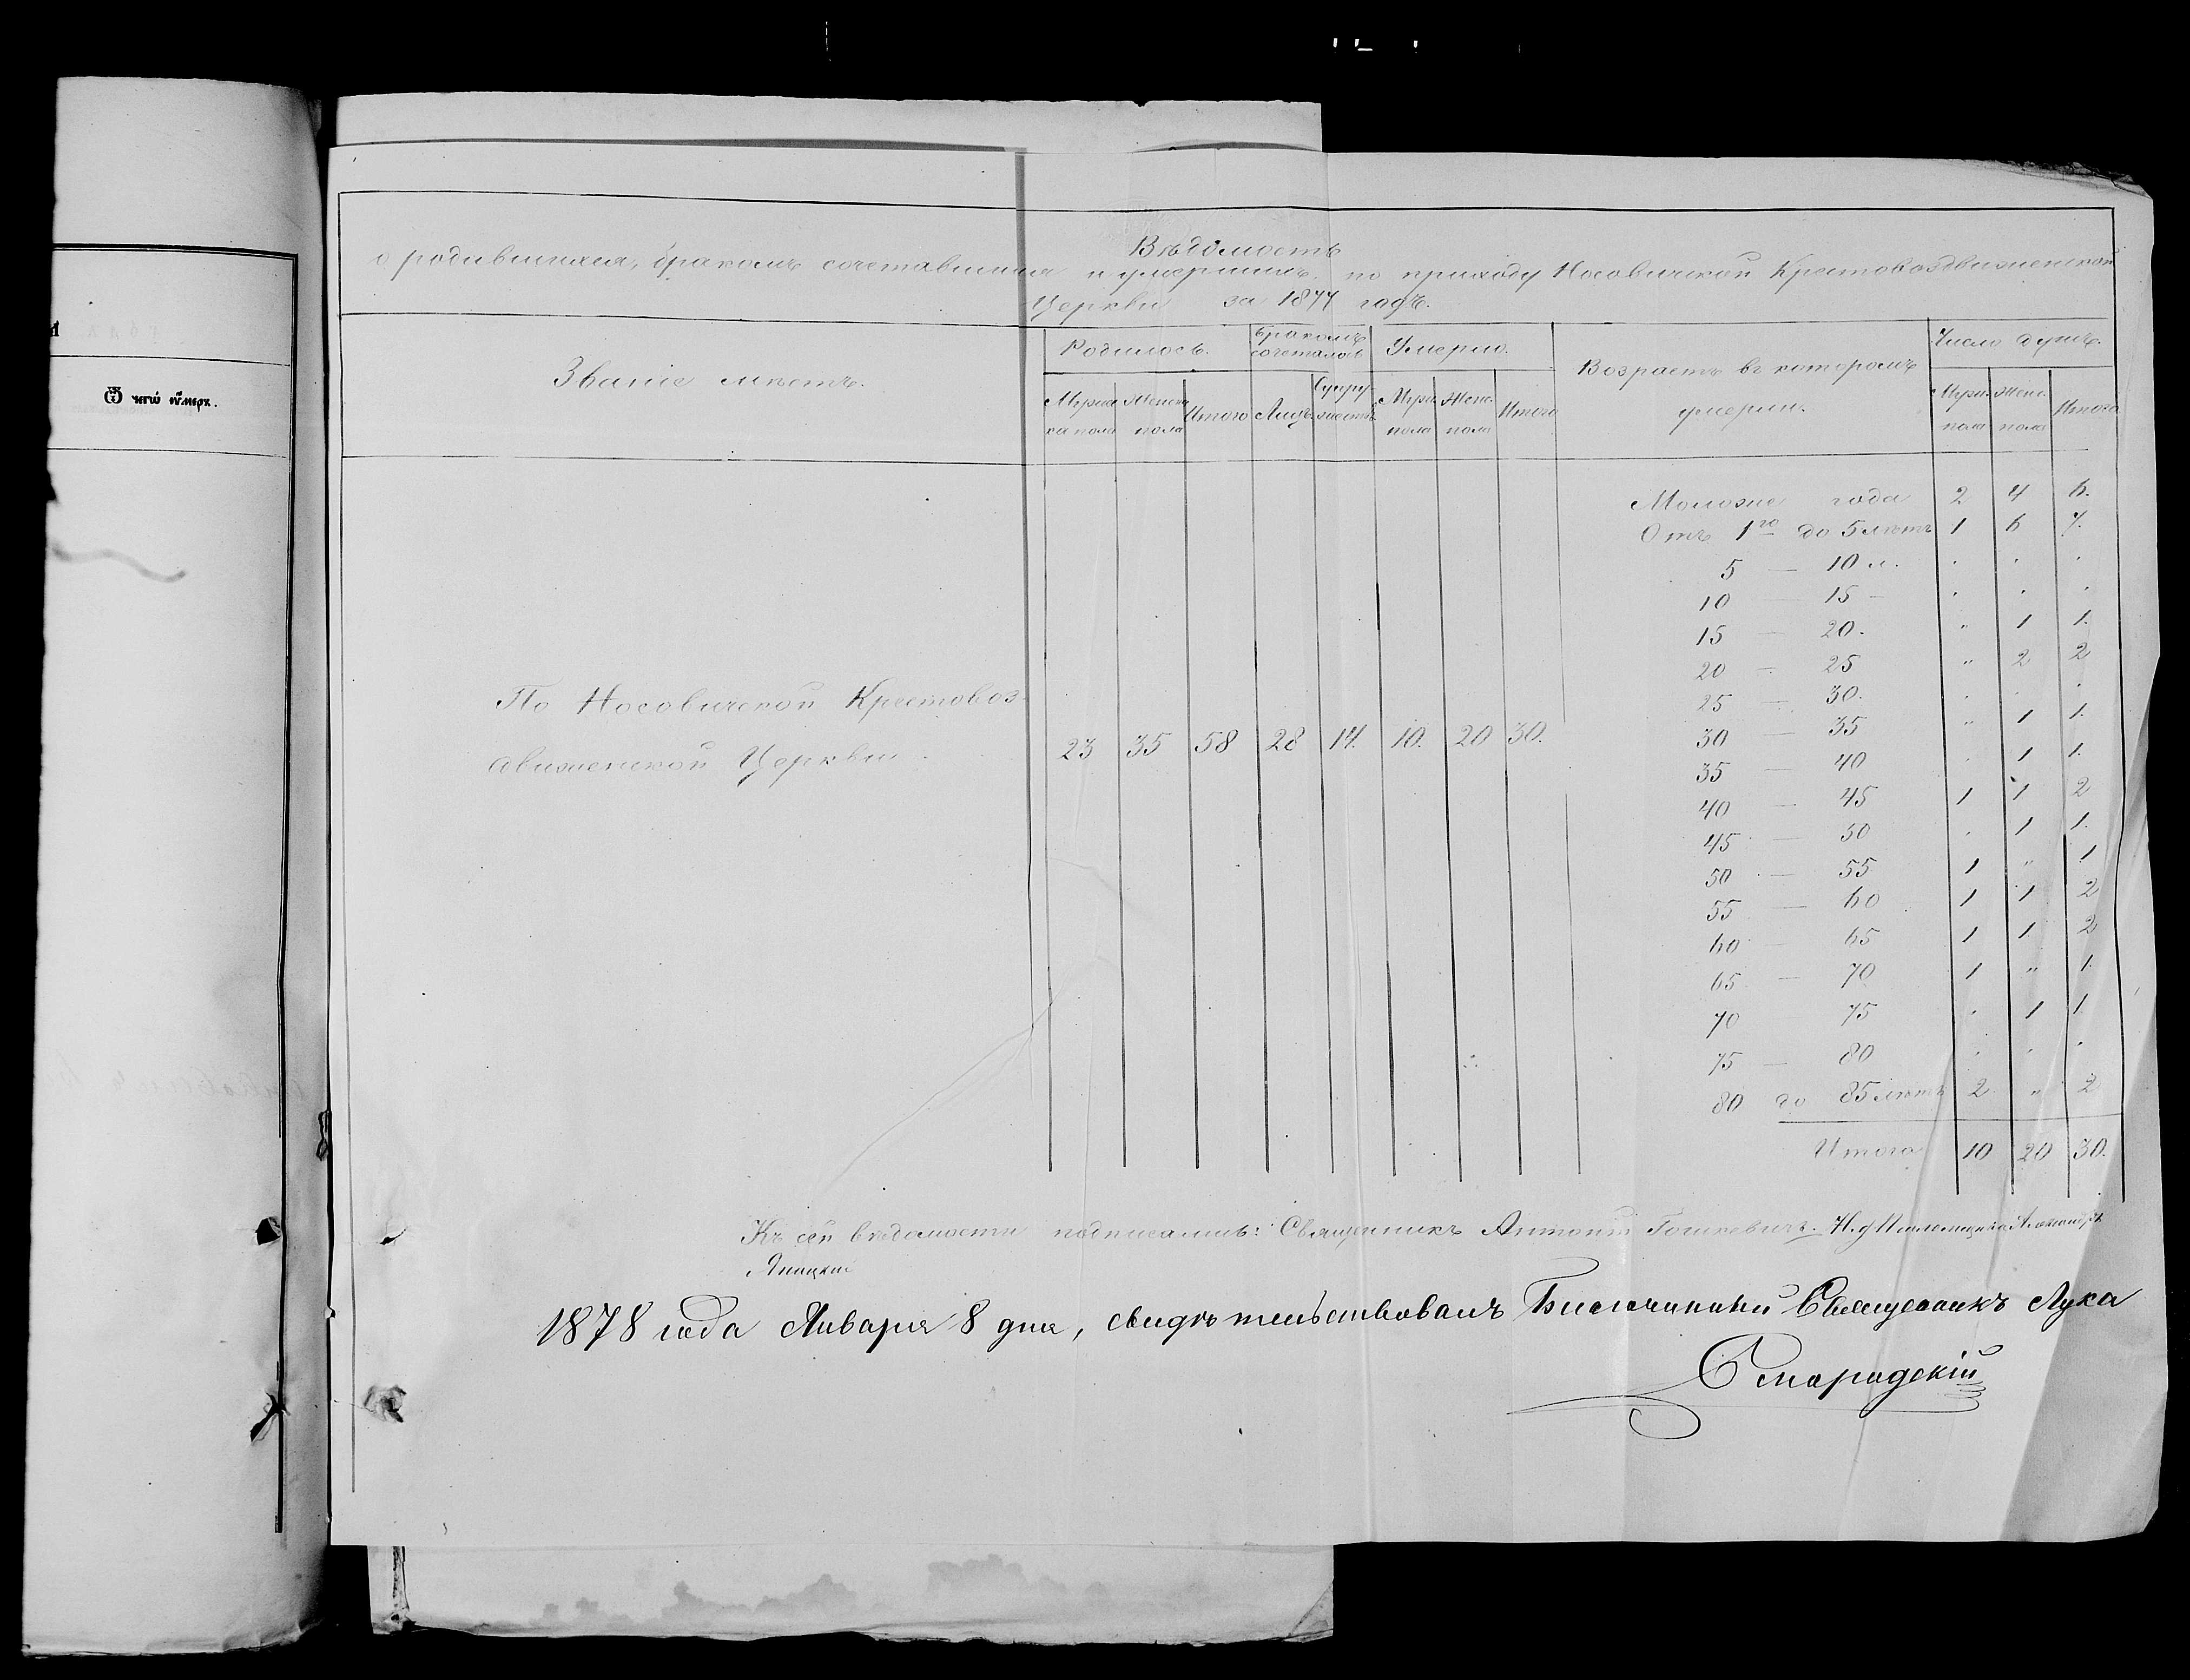 Вѣдомость
о родившихся, бракомъ сочетавшихся и умершихъ, по приходу Носовичской Крестовоздвиженской
Церкви за 1877 годъ.
Званіе мѣстъ.
Родилось.
Бракомъ сочеталось
Умерло.
Возрастъ въ которомъ умерли.
Число душъ.
Мужеска пола
Женска пола
Итого
Лицъ
Супружествъ
Муж. пола
Женс. пола
Итого
Муж. пола
Женс. пола
Итого
По Носовичской Крестовоз-
движенской Церкви.
23 35 58 28 14. 10. 20 30.
Моложе года 2 4 6.
Отъ 1го до 5 лѣтъ 1 6 7.
5 — 10 л. " " "
10 — 15 — " " "
15 — 20. " 1 1.
20 — 25 " 2 2
25 — 30. " " "
30 — 35 " 1 1.
35 — 40 " 1 1.
40 — 45 1 1 2
45 — 50 " 1 1.
50 — 55 1 " 1
55 — 60 1 1 2
60 — 65 1 1 2
65 — 70 1 " 1.
70 75 " 1 1
75 — 80 " " "
80 до 85 лѣтъ 2 " 2
Итого 10 20 30.
Къ сей вѣдомости подписались: Священникъ Антоній Гошкевичъ. И. д. Псаломщика Александръ
Яницкій
1878 года Января 8 дня, свидѣтельствовалъ Благочинный Священникъ Лука
Смарадскій
Ѿ чегѡ оумеръ.